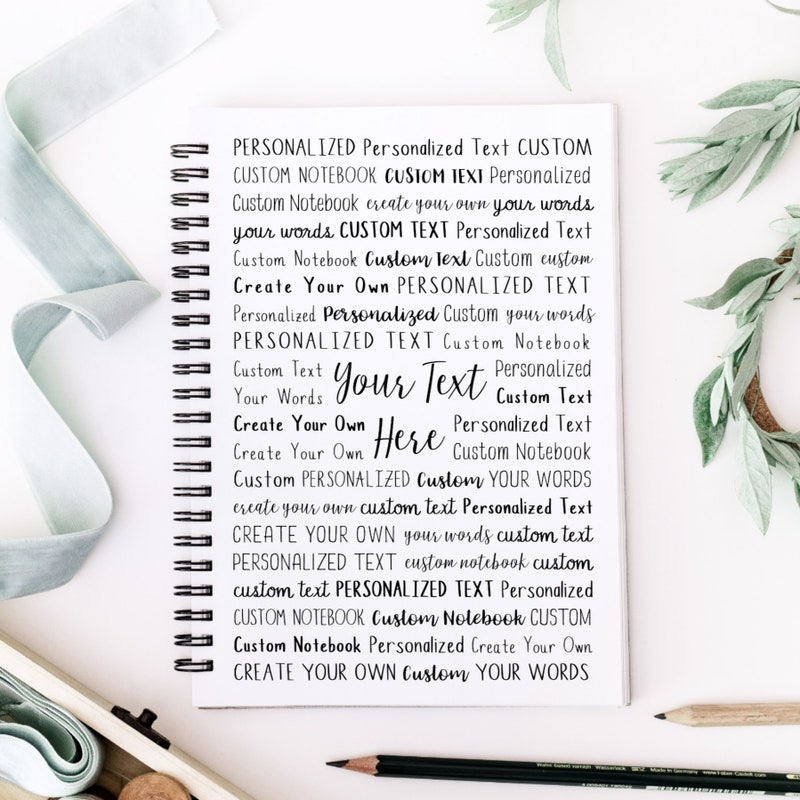 PERSONALIZED Personalized Text CUSTOM
CUSTOM NOTEBOOK CUSTOM TEXT Personalized
Custom Notebook create your own your words
your words CUSTOM TEXT Personalized Text
Custom Notebook Custom Text Custom custom
Create Your Own PERSONALIZED TEXT
Personalized Personalized Custom your words
PERSONALIZED TEXT Custom Notebook
Custom Text Personalized
Your Words Your Text Custom Text
Create Your Own Personalized Text
Create Your Own Here Custom Notebook
Custom PERSONALIZED Custom YOUR WORDS
create your own custom text Personalized Text
CREATE YOUR OWN your words custom text
PERSONALIZED TEXT custom notebook custom
custom text PERSONALIZED TEXT Personalized
CUSTOM NOTEBOOK Custom Notebook CUSTOM
Custom Notebook Personalized Create Your Own
CREATE YOUR OWN Custom YOUR WORDS
Water based varnish Wasserlack Made in Germany www.Faber-Castell.com